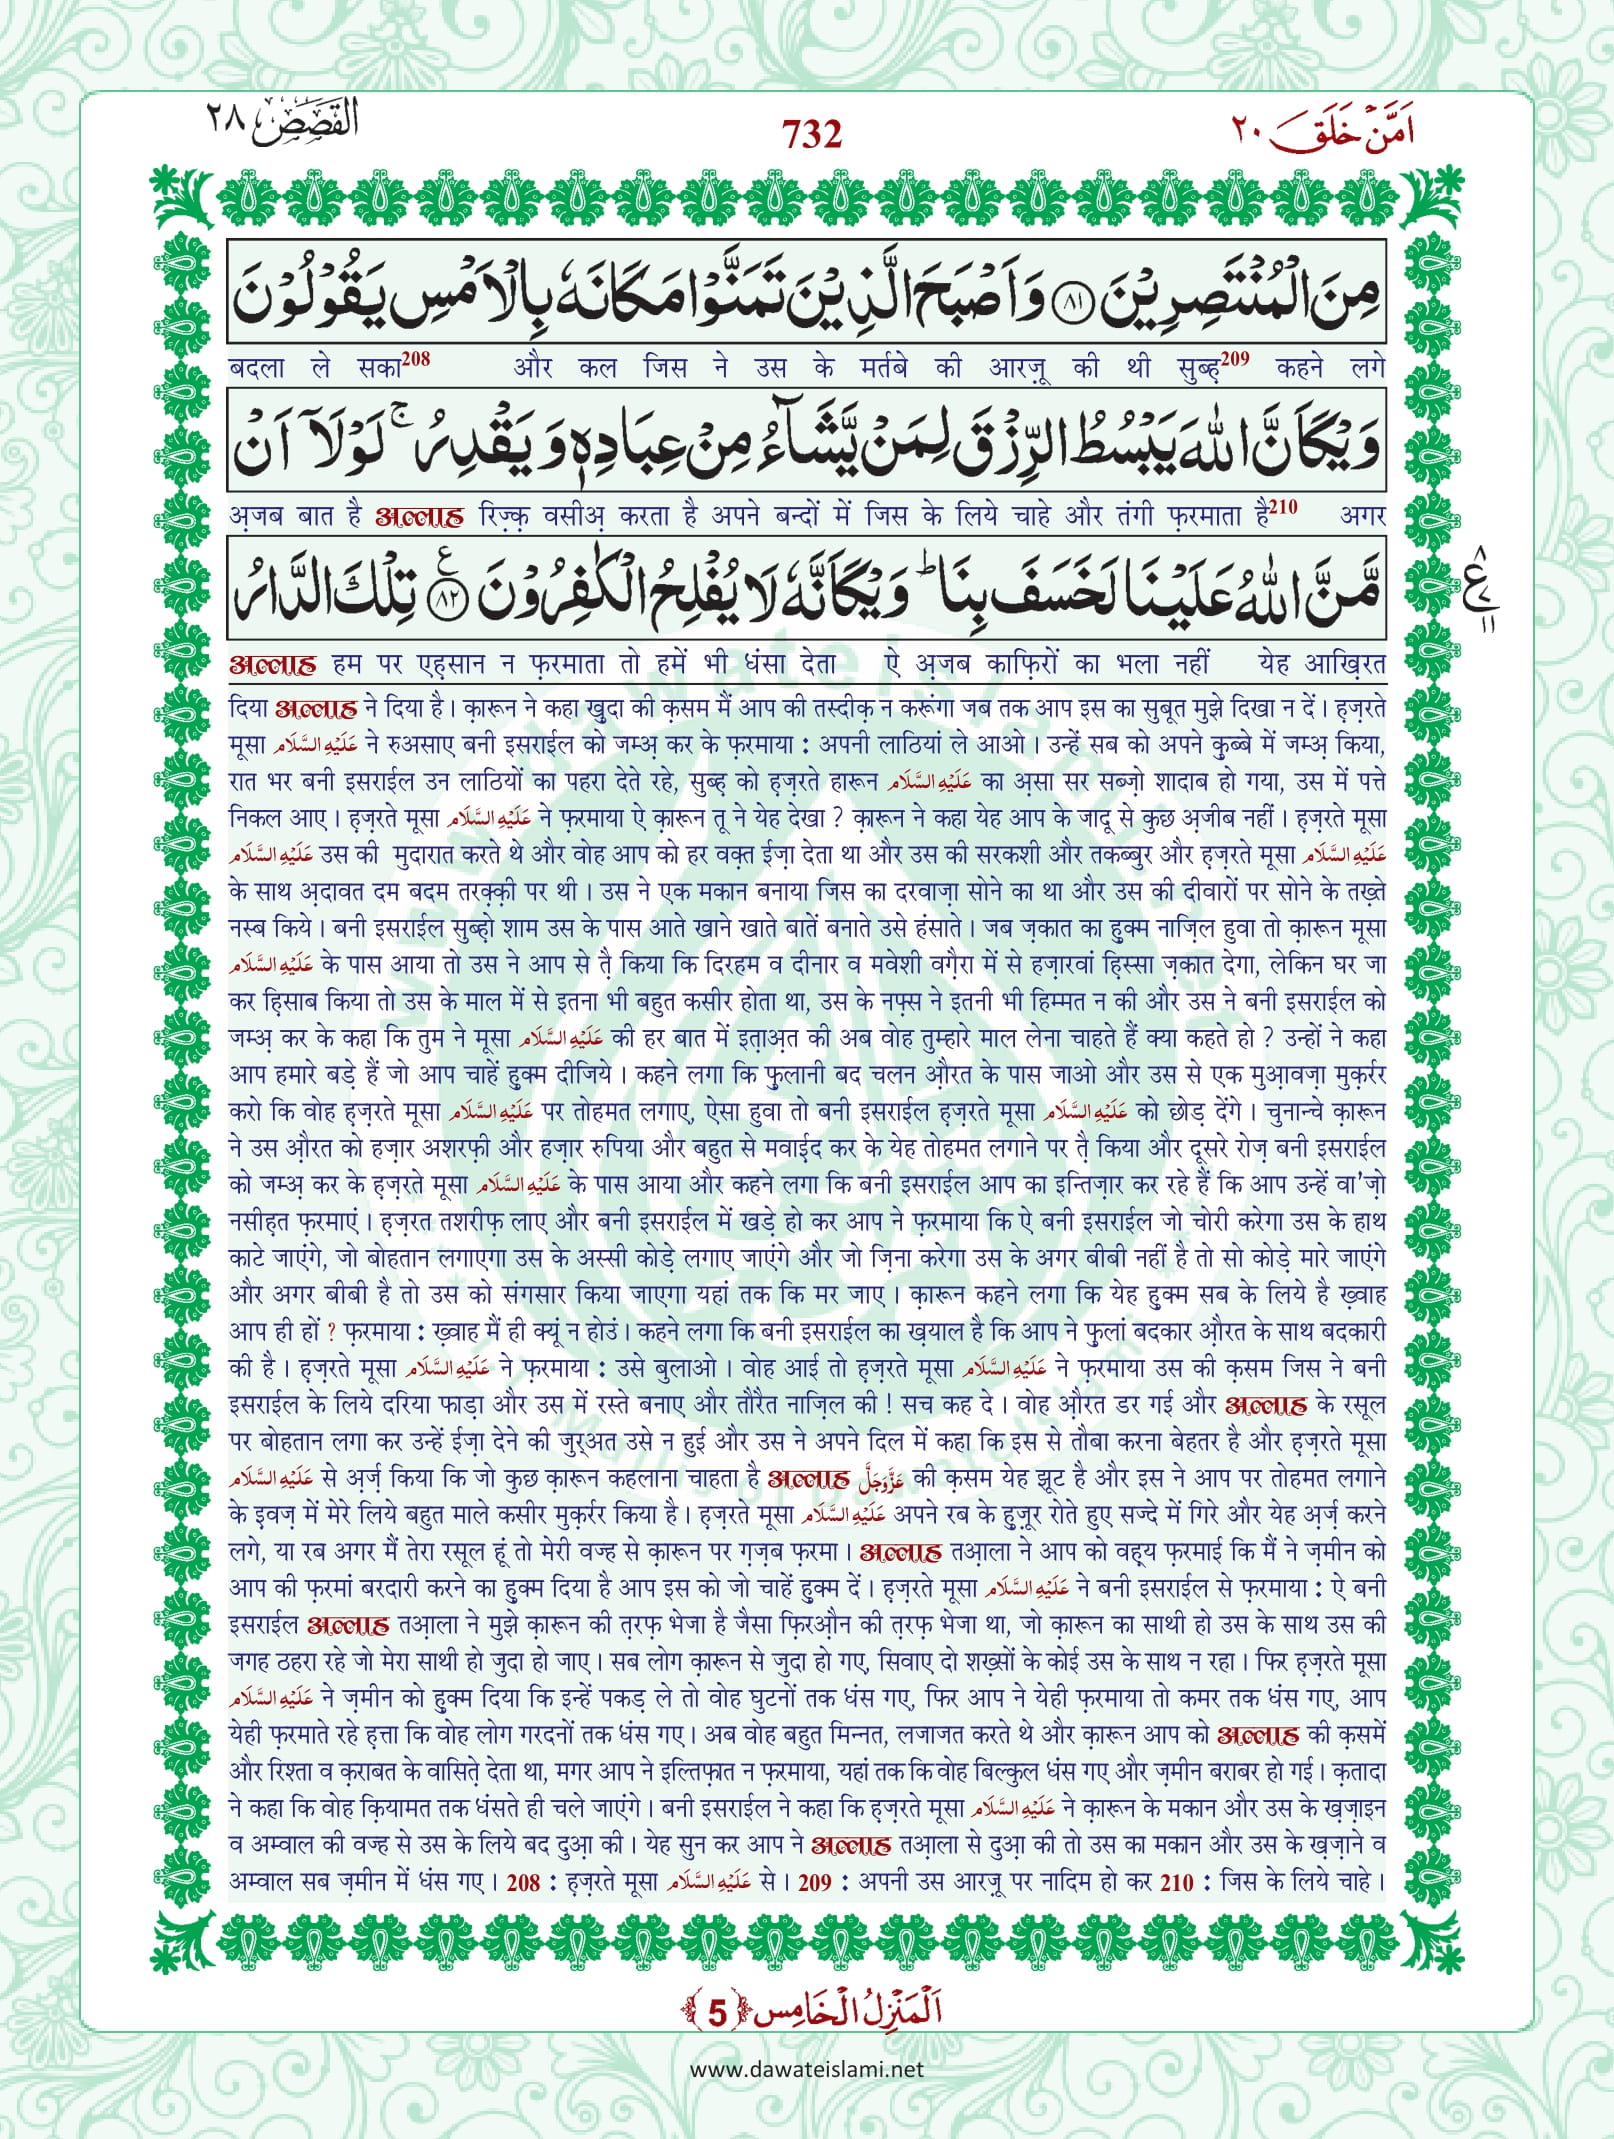 القصص ٢٨
732
اَمَّنْ خَلَقَ ٢٠
مِنَ الْمُنْتَصِرِیْنَ ﴿٨١﴾ وَ اَصْبَحَ الَّذِیْنَ تَمَنَّوْا مَكَانَهٗ بِالْاَمْسِ یَقُوْلُوْنَ
बदला ले सका208 और कल जिस ने उस के मर्तबे की आरज़ू की थी सुब्ह़209 कहने लगे
وَیْكَاَنَّ اللّٰهَ یَبْسُطُ الرِّزْقَ لِمَنْ یَّشَآءُ مِنْ عِبَادِهٖ وَ یَقْدِرُۚ لَوْلَاۤ اَنْ
अ़जब बात है अल्लाह रिज़्क़ वसीअ़ करता है अपने बन्दों में जिस के लिये चाहे और तंगी फ़रमाता है210 अगर
مَّنَّ اللّٰهُ عَلَیْنَا لَخَسَفَ بِنَاؕ وَیْكَاَنَّهٗ لَا یُفْلِحُ الْكٰفِرُوْنَ۠ ﴿٨٢﴾ تِلْكَ الدَّارُ
٨ ع ٧ ١١
अल्लाह हम पर एह़सान न फ़रमाता तो हमें भी धंसा देता ऐ अ़जब काफ़िरों का भला नहीं येह आख़िरत
दिया अल्लाह ने दिया है। क़ारून ने कहा खुदा की क़सम मैं आप की तस्दीक़ न करूंगा जब तक आप इस का सुबूत मुझे दिखा न दें। ह़ज़रते
मूसा عَلَیْهِ السَّلَام ने रुअसाए बनी इसराईल को जम्अ़ कर के फ़रमाया : अपनी लाठियां ले आओ। उन्हें सब को अपने क़ुब्बे में जम्अ़ किया,
रात भर बनी इसराईल उन लाठियों का पहरा देते रहे, सुब्ह़ को ह़ज़रते हारून عَلَیْهِ السَّلَام का अ़सा सर सब्ज़ो शादाब हो गया, उस में पत्ते
निकल आए। ह़ज़रते मूसा عَلَیْهِ السَّلَام ने फ़रमाया ऐ क़ारून तू ने येह देखा ? क़ारून ने कहा येह आप के जादू से कुछ अ़जीब नहीं। ह़ज़रते मूसा
عَلَیْهِ السَّلَام उस की मुदारात करते थे और वोह आप को हर वक़्त ईज़ा देता था और उस की सरकशी और तकब्बुर और ह़ज़रते मूसा عَلَیْهِ السَّلَام
के साथ अ़दावत दम बदम तरक़्क़ी पर थी। उस ने एक मकान बनाया जिस का दरवाज़ा सोने का था और उस की दीवारों पर सोने के तख़्ते
नस्ब किये। बनी इसराईल सुब्हो़ शाम उस के पास आते खाने खाते बातें बनाते उसे हंसाते। जब ज़कात का हु़क्म नाज़िल हुवा तो क़ारून मूसा
عَلَیْهِ السَّلَام के पास आया तो उस ने आप से त़ै किया कि दिरहम व दीनार व मवेशी वग़ैरा में से हज़ारवां हि़स्सा ज़कात देगा, लेकिन घर जा
कर हि़साब किया तो उस के माल में से इतना भी बहुत कसीर होता था, उस के नफ़्स ने इतनी भी हिम्मत न की और उस ने बनी इसराईल को
जम्अ़ कर के कहा कि तुम ने मूसा عَلَیْهِ السَّلَام की हर बात में इत़ाअ़त की अब वोह तुम्हारे माल लेना चाहते हैं क्या कहते हो ? उन्हों ने कहा
आप हमारे बड़े हैं जो आप चाहें हु़क्म दीजिये। कहने लगा कि फ़ुलानी बद चलन औ़रत के पास जाओ और उस से एक मुआ़वज़ा मुक़र्रर
करो कि वोह ह़ज़रते मूसा عَلَیْهِ السَّلَام पर तोहमत लगाए, ऐसा हुवा तो बनी इसराईल ह़ज़रते मूसा عَلَیْهِ السَّلَام को छोड़ देंगे। चुनान्चे क़ारून
ने उस औ़रत को हज़ार अशरफ़ी और हज़ार रुपिया और बहुत से मवाई़द कर के येह तोहमत लगाने पर त़ै किया और दूसरे रोज़ बनी इसराईल
को जम्अ़ कर के ह़ज़रते मूसा عَلَیْهِ السَّلَام के पास आया और कहने लगा कि बनी इसराईल आप का इन्तिज़ार कर रहे हैं कि आप उन्हें वा'ज़ो
नसीह़त फ़रमाएं। ह़ज़रत तशरीफ़ लाए और बनी इसराईल में खड़े हो कर आप ने फ़रमाया कि ऐ बनी इसराईल जो चोरी करेगा उस के हाथ
काटे जाएंगे, जो बोहतान लगाएगा उस के अस्सी कोड़े लगाए जाएंगे और जो ज़िना करेगा उस के अगर बीबी नहीं है तो सो कोड़े मारे जाएंगे
और अगर बीबी है तो उस को संगसार किया जाएगा यहां तक कि मर जाए। क़ारून कहने लगा कि येह हु़क्म सब के लिये है ख़्वाह
आप ही हों ? फ़रमाया : ख़्वाह मैं ही क्यूं न होउं। कहने लगा कि बनी इसराईल का ख़याल है कि आप ने फ़ुलां बदकार औ़रत के साथ बदकारी
की है। ह़ज़रते मूसा عَلَیْهِ السَّلَام ने फ़रमाया : उसे बुलाओ। वोह आई तो ह़ज़रते मूसा عَلَیْهِ السَّلَام ने फ़रमाया उस की क़सम जिस ने बनी
इसराईल के लिये दरिया फाड़ा और उस में रस्ते बनाए और तौरैत नाज़िल की ! सच कह दे। वोह औ़रत डर गई और अल्लाह के रसूल
पर बोहतान लगा कर उन्हें ईज़ा देने की जुर्अत उसे न हुई और उस ने अपने दिल में कहा कि इस से तौबा करना बेहतर है और ह़ज़रते मूसा
عَلَیْهِ السَّلَام से अ़र्ज़ किया कि जो कुछ क़ारून कहलाना चाहता है अल्लाह عَزَّوَجَلَّ की क़सम येह झूट है और इस ने आप पर तोहमत लगाने
के इ़वज़ में मेरे लिये बहुत माले कसीर मुक़र्रर किया है। ह़ज़रते मूसा عَلَیْهِ السَّلَام अपने रब के हु़ज़ूर रोते हुए सज्दे में गिरे और येह अ़र्ज़ करने
लगे, या रब अगर मैं तेरा रसूल हूं तो मेरी वज्ह से क़ारून पर ग़ज़ब फ़रमा। अल्लाह तआ़ला ने आप को वह़्य फ़रमाई कि मैं ने ज़मीन को
आप की फ़रमां बरदारी करने का हु़क्म दिया है आप इस को जो चाहें हु़क्म दें। ह़ज़रते मूसा عَلَیْهِ السَّلَام ने बनी इसराईल से फ़रमाया : ऐ बनी
इसराईल अल्लाह तआ़ला ने मुझे क़ारून की त़रफ़ भेजा है जैसा फ़िरऔ़न की त़रफ़ भेजा था, जो क़ारून का साथी हो उस के साथ उस की
जगह ठहरा रहे जो मेरा साथी हो जुदा हो जाए। सब लोग क़ारून से जुदा हो गए, सिवाए दो शख़्सों के कोई उस के साथ न रहा। फिर ह़ज़रते मूसा
عَلَیْهِ السَّلَام ने ज़मीन को हु़क्म दिया कि इन्हें पकड़ ले तो वोह घुटनों तक धंस गए, फिर आप ने येही फ़रमाया तो कमर तक धंस गए, आप
येही फ़रमाते रहे ह़त्ता कि वोह लोग गरदनों तक धंस गए। अब वोह बहुत मिन्नत, लजाजत करते थे और क़ारून आप को अल्लाह की क़समें
और रिश्ता व क़राबत के वासित़े देता था, मगर आप ने इल्तिफ़ात न फ़रमाया, यहां तक कि वोह बिल्कुल धंस गए और ज़मीन बराबर हो गई। क़तादा
ने कहा कि वोह क़ियामत तक धंसते ही चले जाएंगे। बनी इसराईल ने कहा कि ह़ज़रते मूसा عَلَیْهِ السَّلَام ने क़ारून के मकान और उस के ख़ज़ाइन
व अम्वाल की वज्ह से उस के लिये बद दुआ़ की। येह सुन कर आप ने अल्लाह तआ़ला से दुआ़ की तो उस का मकान और उस के ख़ज़ाने व
अम्वाल सब ज़मीन में धंस गए। 208 : ह़ज़रते मूसा عَلَیْهِ السَّلَام से। 209 : अपनी उस आरज़ू पर नादिम हो कर 210 : जिस के लिये चाहे।
اَلْمَنْزِلُ الْخَامِس ﴿5﴾
www.dawateislami.net